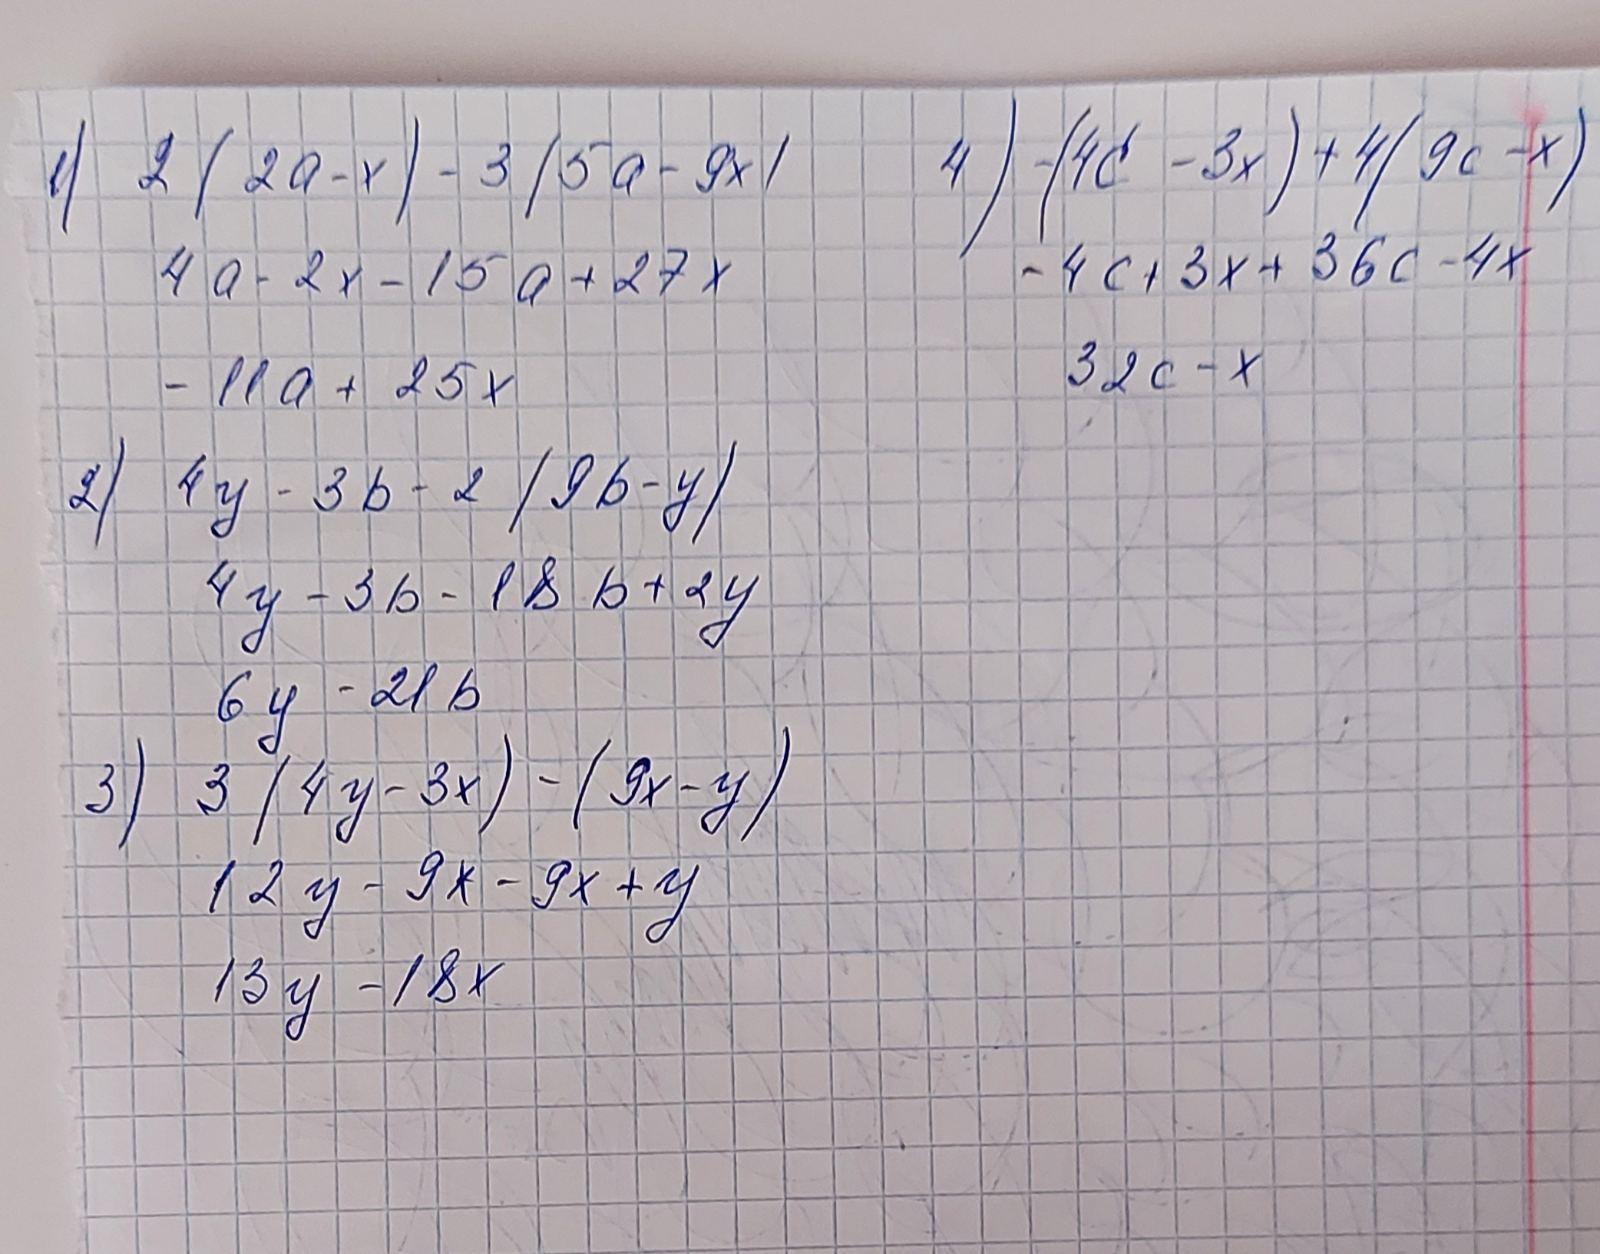 1) 2(2a-x)-3(5a-9x)
4a-2x-15a+27x
-11a+25x
2) 4y-3b-2(9b-y)
4y-3b-18b+2y
6y-21b
3) 3(4y-3x)-(9x-y)
12y-9x-9x+y
13y-18x
4) -(4c-3x)+4(9c-x)
-4c+3x+36c-4x
32c-x